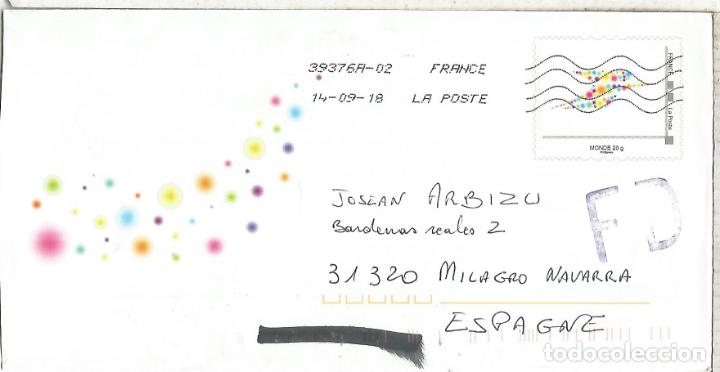 39376A-02 FRANCE
14-09-18 LA POSTE
FRANCE
La Poste
MONDE 20 g
JOSEAN ARBIZU
Bardenas reales 2
FD
31320 MILAGRO NAVARRA
ESPAGNE
todocoleccion